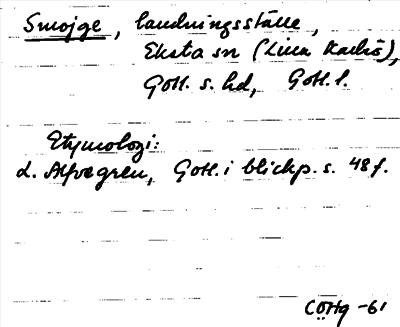 Smojge, landningsställe,
Eksta sn (Lilla Karlsö),
Gotl. s. hd, Gotl. l.
Etymologi:
L. Alfvegren, Gotl. i blickp. s. 48 f.
CÖHg -61